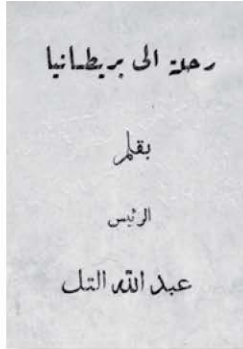 رحلة الى بريطانيا
بقلم
الرئيس
عبد الله التل